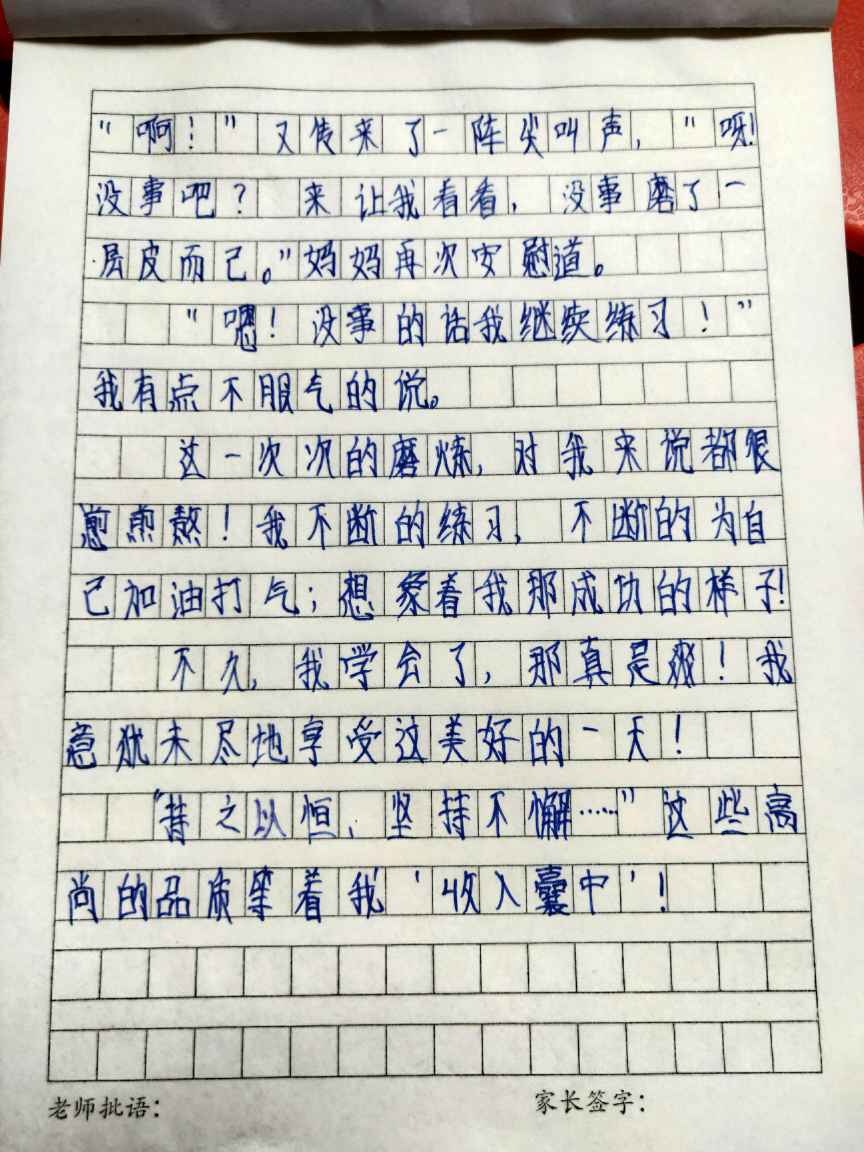 “啊！”又传来了一阵尖叫声，“呀！
没事吧？ 来让我看看，没事磨了一
层皮而已。”妈妈再次安慰道。
“嗯！没事的话我继续练习！”
我有点不服气的说。
这一次次的磨炼，对我来说都很
煎熬！我不断的练习，不断的为自
己加油打气；想象着我那成功的样子！
不久，我学会了，那真是爽！我
意犹未尽地享受这美好的一天！
“持之以恒、坚持不懈……”这些高
尚的品质等着我‘收入囊中’！
老师批语：
家长签字：